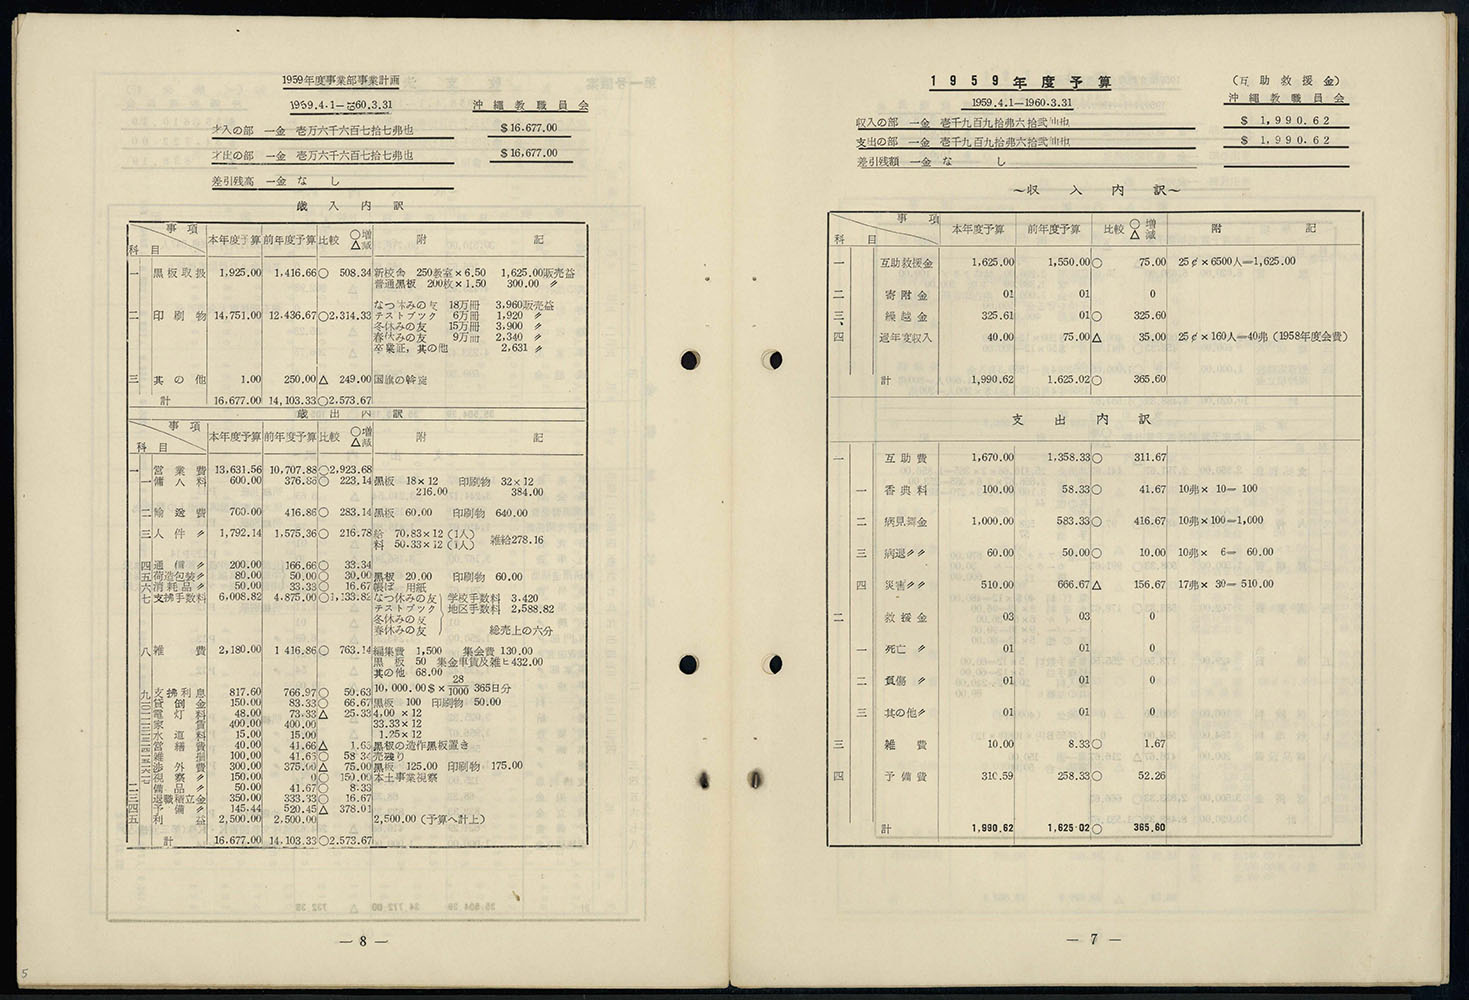 1959年度事業部事業計画
1959.4.1—1960.3.31 沖縄教職員会
才入の部 一金 壱万六千六百七拾七弗也 $16.677.00
才出の部 一金 壱万六千六百七拾七弗也 $16,677.00
差引残高 一金 なし
歳入内訳
科目 事項 本年度予算 前年度予算 比較 ○増 △減 附記
一 黒板取扱 1,925.00 1,416.66 ○ 508.34 新校舎 250教室×6.50 1,625.00販売益
普通黒板 200枚×1.50 300.00 〃
なつ休みの友 18万冊 3,960販売益
二 印刷物 14,751.00 12.436.67 ○2,314.33 テストブック 6万冊 1,920 〃
冬休みの友 15万冊 3,900 〃
春休みの友 9万冊 2,340 〃
卒業証，其の他 2,631 〃
三 其の他 1.00 250.00 △ 249.00 国旗の斡旋
計 16,677.00 14,103.33 ○2,573.67
歳出内訳
科目 事項 本年度予算 前年度予算 比較 ○増 △減 附記
一 営業費 13,631.56 10,707.88 ○2,923.68
一 傭人料 600.00 376.86 ○ 223.14 黒板 18×12 印刷物 32×12
216.00 384.00
二 輸送費 700.00 416.86 ○ 283.14 黒板 60.00 印刷物 640.00
三 人件〃 1,792.14 1,575.36 ○ 216.78 給 70,83×12（1人）
料 50.33×12（1人） 雑給278.16
四 通信〃 200.00 166.66 ○ 33.34
五 荷造包装〃 80.00 50.00 ○ 30.00 黒板 20.00 印刷物 60.00
六 消耗品〃 50.00 33.33 ○ 16.67 帳ぼ 用紙
七 支拂手数料 6,008.82 4,875.00 ○1,133.82 なつ休みの友 学校手数料 3.420
テストブック 地区手数料 2,588.82
冬休みの友
春休みの友 総売上の六分
八 雑費 2,180.00 1 416.86 ○ 763.14 編集費 1,500 集会費 130.00
黒板 50 集金車賃及雑ヒ432.00
其の他 68.00
九 支拂利息 817.60 766.97 ○ 50.63 10,000.00$×28/1000 365日分
一〇 貸倒金 150.00 83.33 ○ 66.67 黒板 100 印刷物 50.00
一一 電灯料 48.00 73.33 △ 25.33 4,00 ×12
一二 家賃 400.00 400.00 33.33×12
一三 水道料 15.00 15.00 1.25×12
一四 営繕費 40.00 41.66 △ 1.63 黒板の造作黒板置き
一五 雑損 100.00 41.65 ○ 58 34 売残り
一六 渉外費 300.00 375.00 △ 75.00 黒板 125.00 印刷物 175.00
一七 視察〃 150.00 0 ○ 150.00 本土事業視察
二 備品〃 50.00 41.67 ○ 8.33
三 退職積立金 350.00 333.33 ○ 16.67
四 予備〃 145.44 520.45 △ 378.01
五 利益 2,500.00 2,500.00 2,500.00（予算へ計上）
計 16.677.00 14,103.33 ○2.573.67
— 8 —
1959年度予算 （互助救援金）
1959.4.1—1960.3.31 沖縄教職員会
収入の部 一金 壱千九百九拾弗六拾弐仙也 $ 1,990.62
支出の部 一金 壱千九百九拾弗六拾弐仙也 $ 1,990.62
差引残額 一金 なし
～収入内訳～
科目 事項 本年度予算 前年度予算 比較 ○増 △減 附記
一 互助救援金 1,625.00 1,550.00 ○ 75.00 25￠×6500人＝1,625.00
二 寄附金 01 01 0
三、 繰越金 325.61 01 ○ 325.60
四 過年度収入 40.00 75.00 △ 35.00 25￠×160人＝40弗（1958年度会費）
計 1,990,62 1.625.02 ○ 365.60
支出内訳
一 互助費 1,670.00 1,358.33 ○ 311.67
一 香典料 100.00 58.33 ○ 41.67 10弗× 10＝ 100
二 病見舞金 1,000.00 583.33 ○ 416.67 10弗×100＝1,000
三 病退〃〃 60.00 50.00 ○ 10.00 10弗× 6＝ 60.00
四 災害〃〃 510.00 666.67 △ 156.67 17弗× 30＝510.00
二 救援金 03 03 0
一 死亡〃 01 01 0
二 負傷〃 01 01 0
三 其の他〃 01 01 0
三 雑費 10.00 8.33 ○ 1.67
四 予備費 310.59 258.33 ○ 52.26
計 1,990.62 1,625.02 ○ 365.60
— 7 —
5